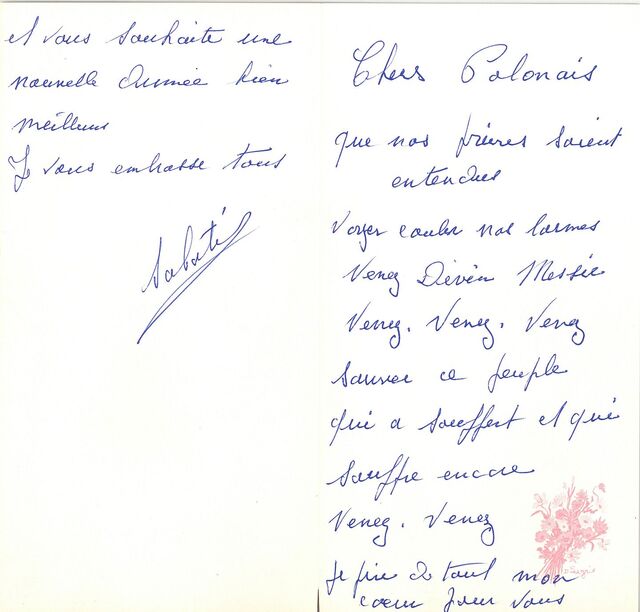 Chers Polonais
que nos prières soient
entendues
Voyez couler nos larmes
Venez Divin Messie
Venez. Venez. Venez
sauver ce peuple
qui a souffert et qui
souffre encore
Venez. Venez
Je prie de tout mon
coeur pour vous
et vous souhaite une
nouvelle Année bien
meilleure
Je vous embrasse tous
Sabaté